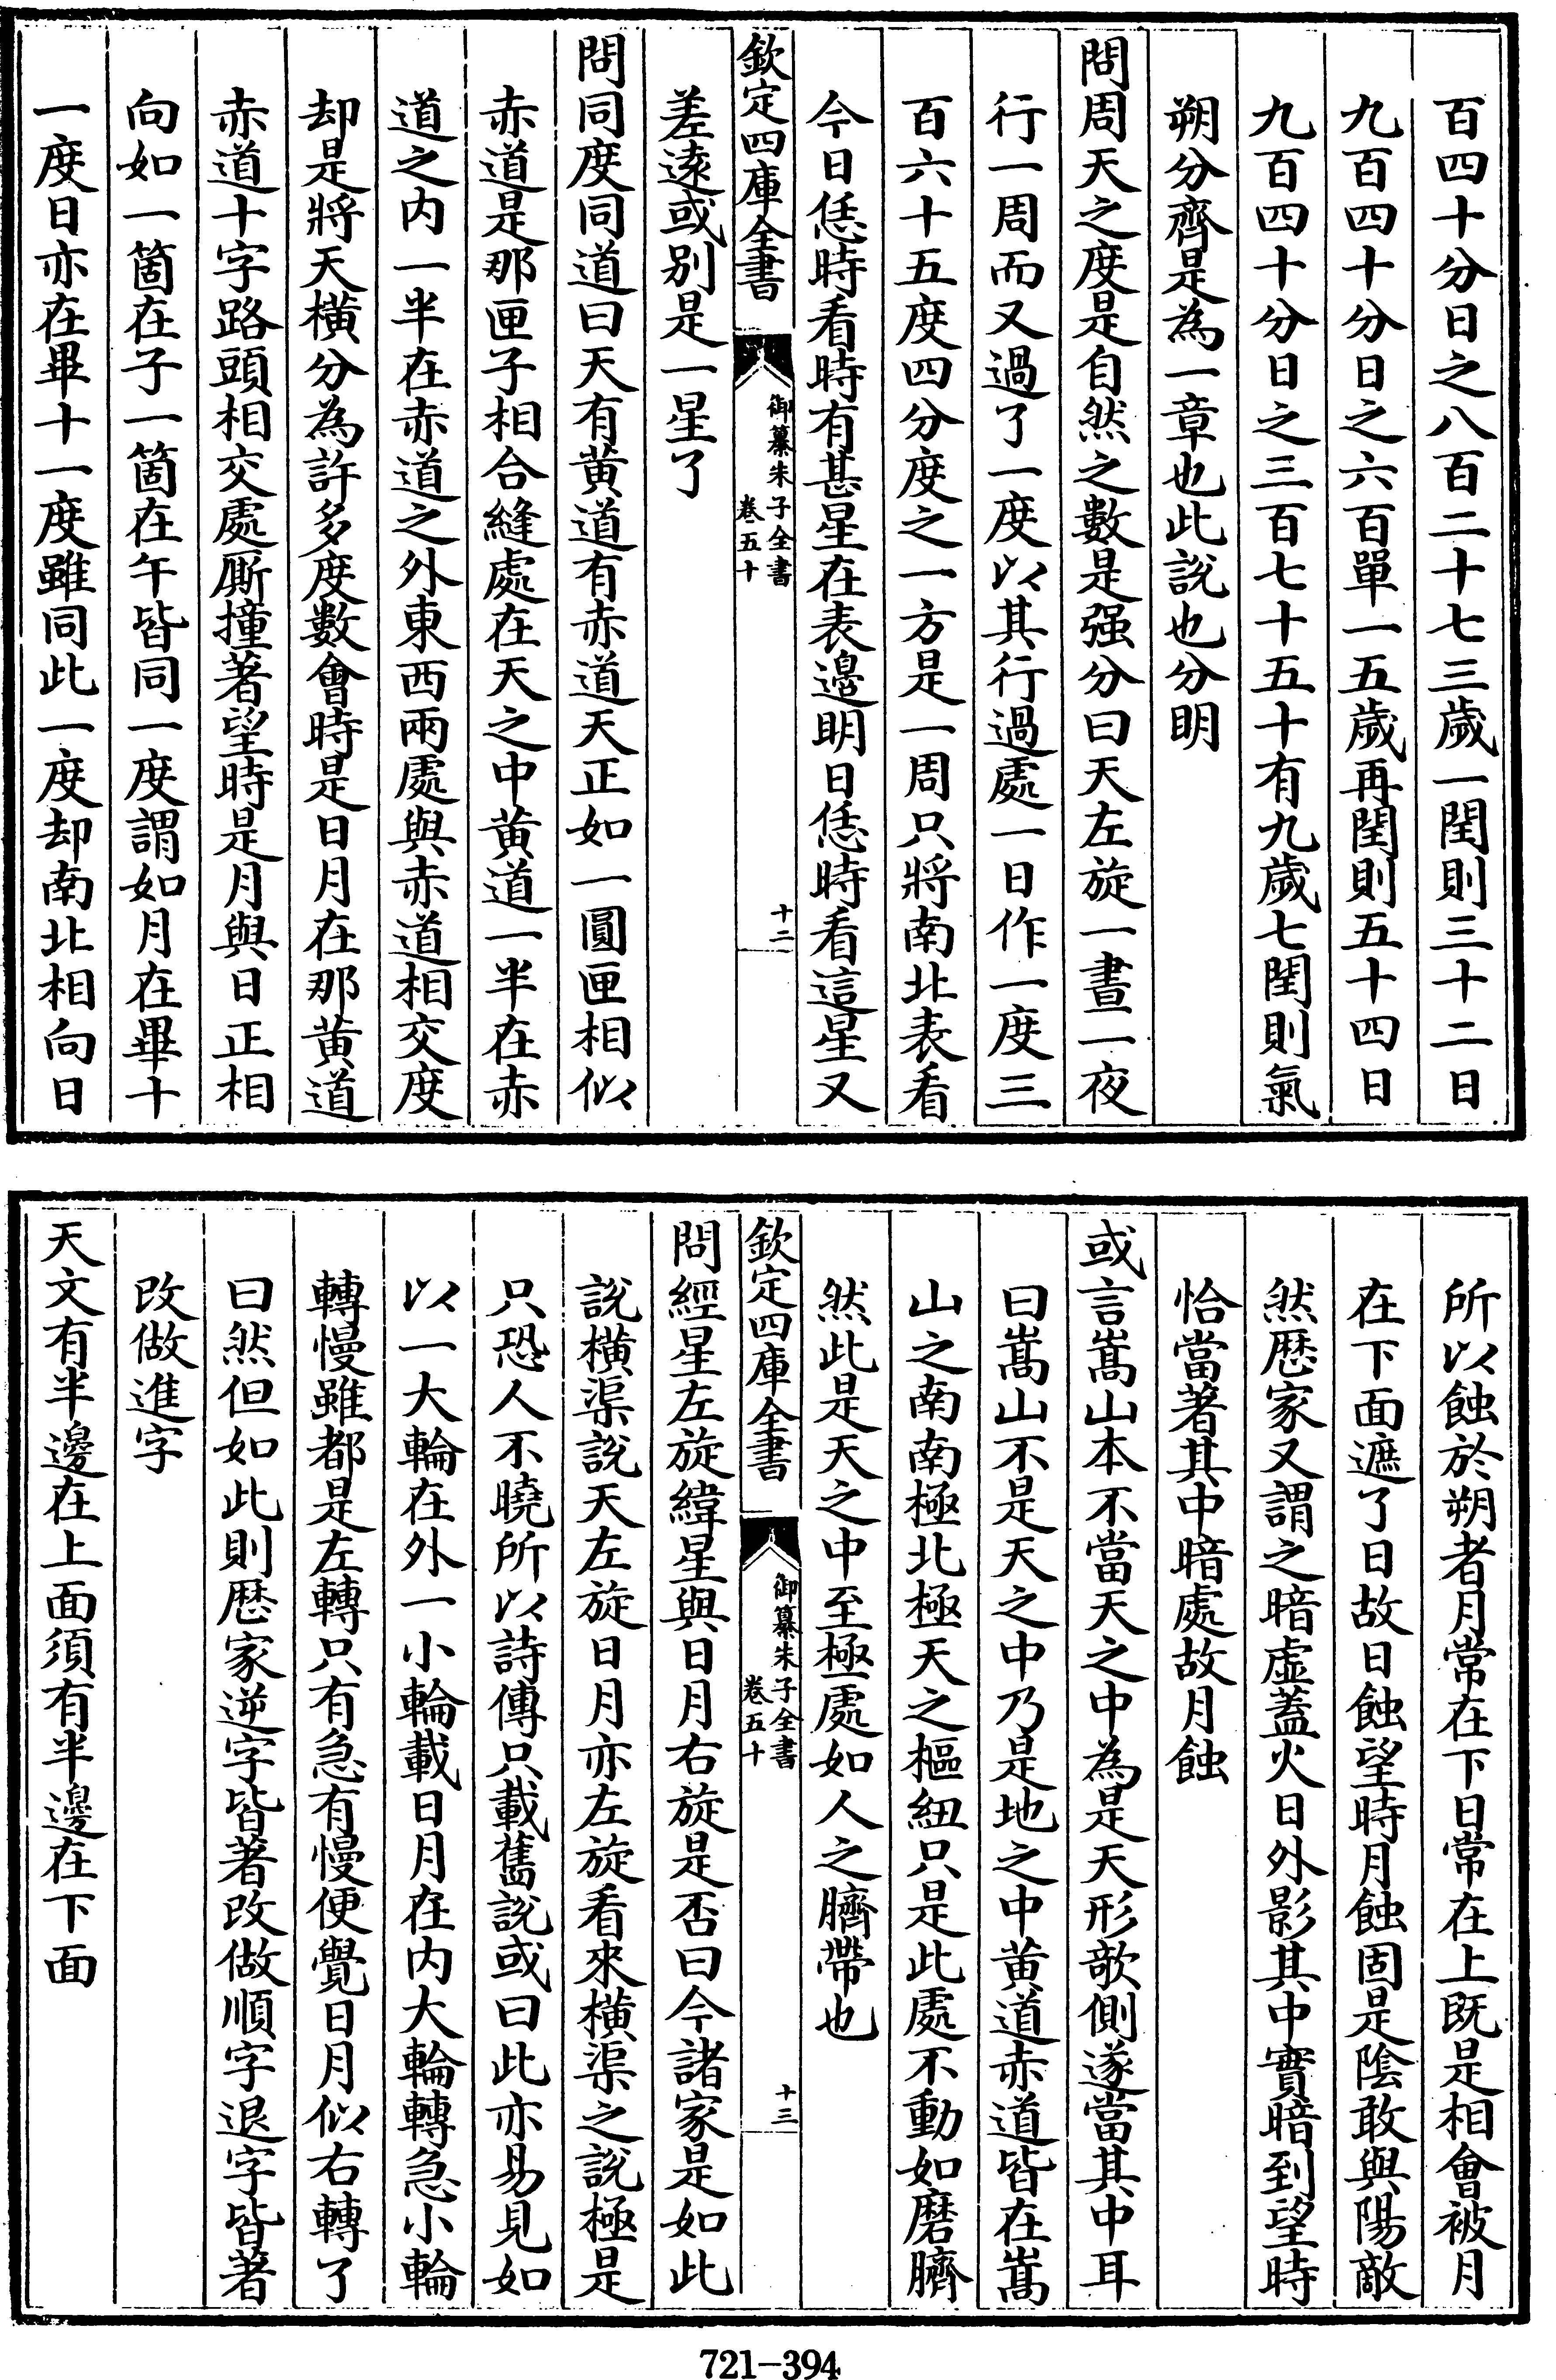 百四十分日之八百二十七三歲一閏則三十二日
九百四十分日之六百單一五歲再閏則五十四日
九百四十分日之三百七十五十有九歲七閏則氣
朔分齊是為一章也此說也分明
問周天之度是自然之數是强分曰天左旋一晝一夜
行一周而又過了一度以其行過處一日作一度三
百六十五度四分度之一方是一周只將南北表看
今日恁時看時有甚星在表邊明日恁時看這星又
欽定四庫全書
御纂朱子全書
卷五十
十二
差遠或别是一星了
問同度同道曰天有黄道有赤道天正如一圓匣相似
赤道是那匣子相合縫處在天之中黄道一半在赤
道之内一半在赤道之外東西兩處與赤道相交度
却是將天橫分為許多度數會時是日月在那黄道
赤道十字路頭相交處厮撞著望時是月與日正相
向如一箇在子一箇在午皆同一度謂如月在畢十
一度日亦在畢十一度雖同此一度却南北相向日
所以蝕於朔者月常在下日常在上既是相會被月
在下面遮了日故日蝕望時月蝕固是陰敢與陽敵
然厯家又謂之暗虛蓋火日外影其中實暗到望時
恰當著其中暗處故月蝕
或言嵩山本不當天之中為是天形欹側遂當其中耳
曰嵩山不是天之中乃是地之中黄道赤道皆在嵩
山之南南極北極天之樞紐只是此處不動如磨臍
然此是天之中至極處如人之臍帶也
欽定四庫全書
御纂朱子全書
卷五十
十三
問經星左旋緯星與日月右旋是否曰今諸家是如此
說橫渠說天左旋日月亦左旋看來橫渠之說極是
只恐人不曉所以詩傳只載舊說或曰此亦易見如
以一大輪在外一小輪載日月在内大輪轉急小輪
轉慢雖都是左轉只有急有慢便覺日月似右轉了
曰然但如此則厯家逆字皆著改做順字退字皆著
改做進字
天文有半邊在上面須有半邊在下面
721-394